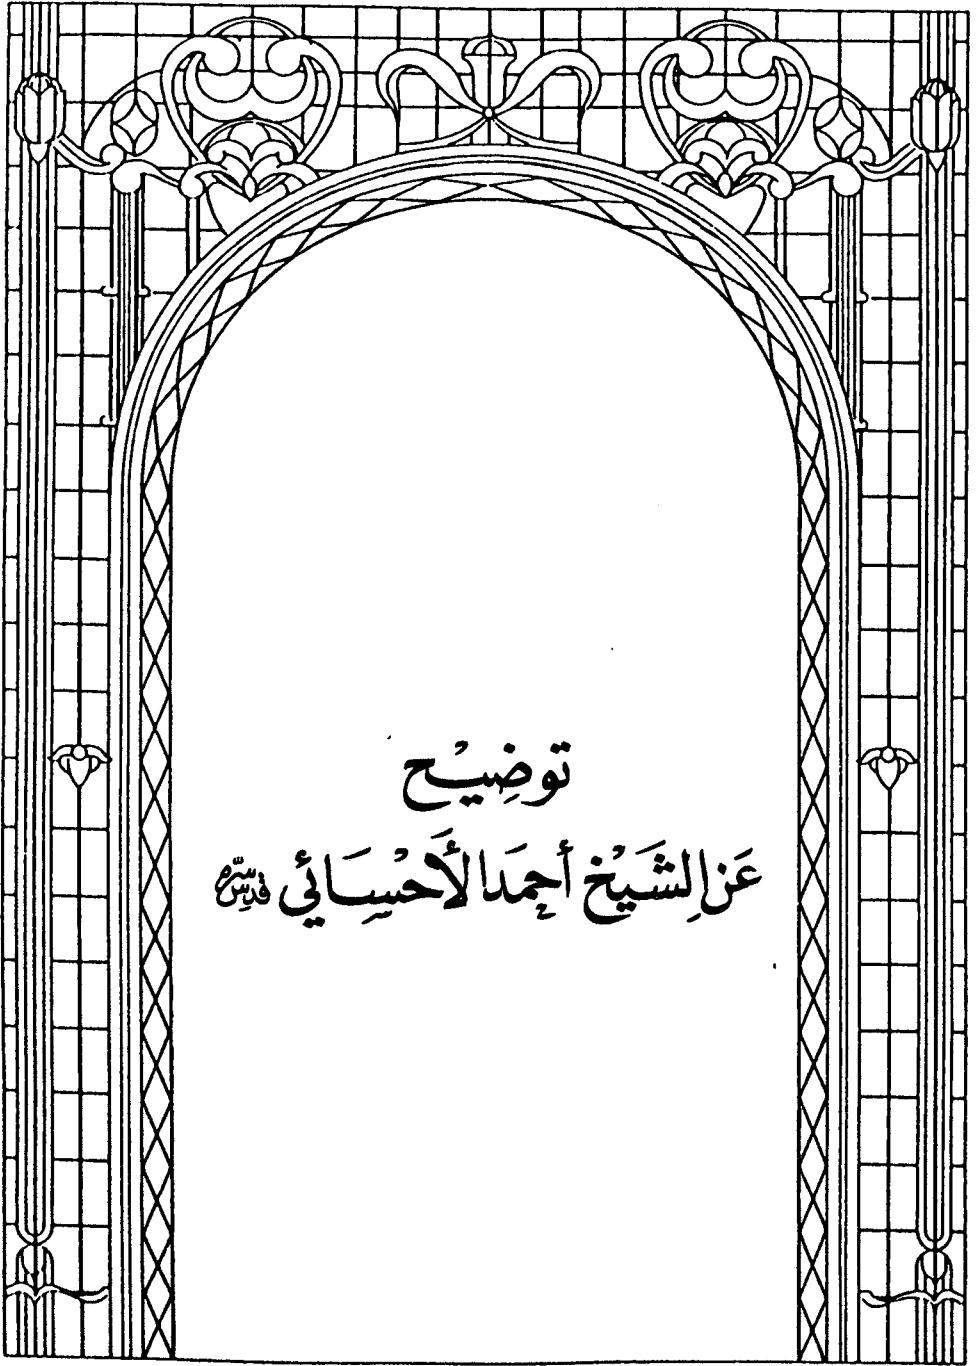 توضِيْح
عَنِ الشَيْخ أحمَد الأَحْسَائي قدِّسَ سِرّه